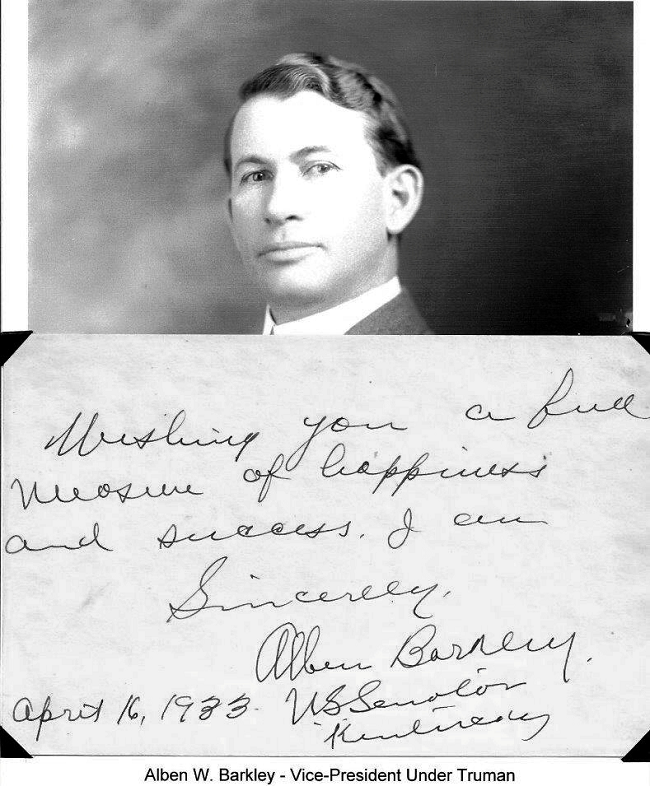 Wishing you a full
measure of happiness
and success. I am
Sincerely,
Alben Barkley.
April 16, 1933. US Senator
Kentucky
Alben W. Barkley - Vice-President Under Truman